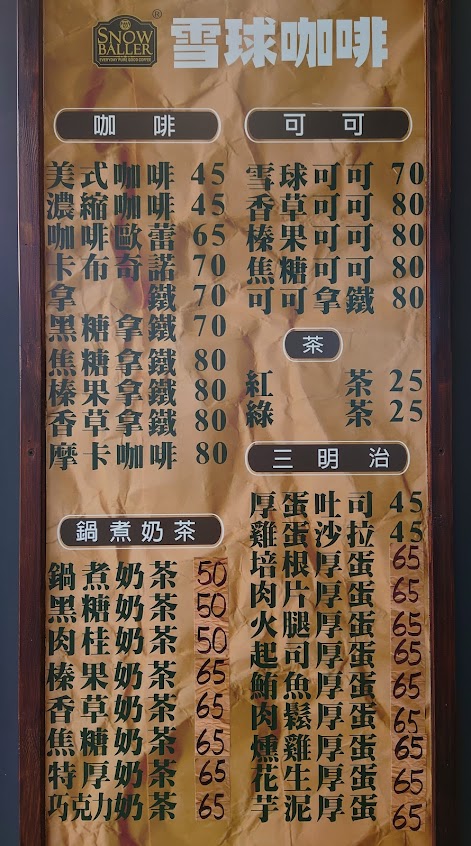 SNOW
BALLER
EVERYDAY PURE GOOD COFFEE
®
雪球咖啡
咖啡
美式咖啡 45
濃縮咖啡 45
咖啡歐蕾 65
卡布奇諾 70
拿鐵 70
黑糖拿鐵 70
焦糖拿鐵 80
榛果拿鐵 80
香草拿鐵 80
摩卡咖啡 80
鍋煮奶茶
鍋煮奶茶 50
黑糖奶茶 50
肉桂奶茶 50
榛果奶茶 65
香草奶茶 65
焦糖奶茶 65
特厚奶茶 65
巧克力奶茶 65
可可
雪球可可 70
香草可可 80
榛果可可 80
焦糖可可 80
可可拿鐵 80
茶
紅茶 25
綠茶 25
三明治
厚蛋吐司 45
雞蛋沙拉 45
培根厚蛋 65
肉片厚蛋 65
火腿厚蛋 65
起司厚蛋 65
鮪魚厚蛋 65
肉鬆厚蛋 65
燻雞厚蛋 65
花生厚蛋 65
芋泥厚蛋 65